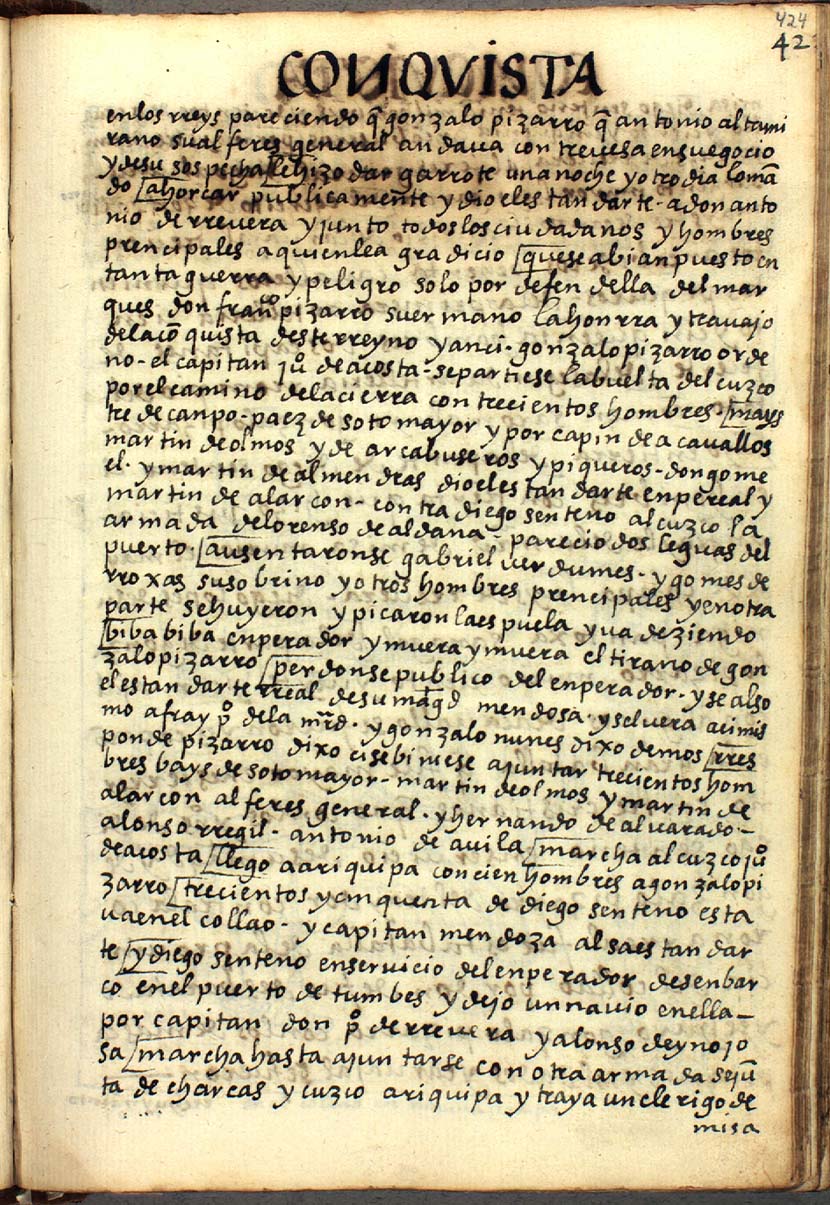 424
42
CONQVISTA
enlos rreys pareciendo q̃ gonzalo pizarro q̃ antonio altami
rano sual feres general andava con trevesa ensu egocio
y desu sospecha le hizo dar garrote una noche y otro dia lomã
do ahorcar publicamente y dio el estandarte - a don anto
nio de rrevera y junto todos los ciudadanos y hombres
prencipales a quien le a gradicio que se abian puesto en
tanta guerra y peligro solo por defendella del mar
ques don franco pizarro su ermano la honrra y travajo
de la cõquista deste rreyno y anci - gonzalo pizarro orde
no - el capitan juo de acosta - se partiese la buelta del cuzco
por el camino de la cierra con trecientos hombres - mays
tre de canpo - paez de sotomayor y por capin de a cavallos
martin de olmos y de arcabuseros y piqueros - don gome
el - y martin de almendras dio el estandarte enpereal y
martin de alarcon - contra diego senteno al cuzco la
armada de lorenso de aldana - parecio dos leguas del
puerto - ausentaronse gabriel verdumes - y gomes de
rroxas su sobrino y otros hombres prencipales y en otra
parte se huyeron y picaron la espuela y va deziendo
biba biba enperador y muera y muera el tirano de gon
zalo pizarro perdonse publico del enperador - y se also
el estandarte rreal de su magd mendosa - y selvera acimis
mo a fray po de la mrd - y gonzalo nunes dixo demos rres
ponde pizarro dixo ci se biniese ajuntar trecientos hom
bres bays de sotomayor - martin de olmos y martin de
alarcon alferes general - y hernando de alvarado -
alonso rregil - antonio de avila marcha al cuzco juo
de acosta llego a ariquipa con cien hombres a gonzalo pi
zarro trecientos y cinquenta de diego senteno esta
va en el collao - y capitan mendoza alsa estandar
te y diego senteno en servicio del enperador desenbar
co en el puerto de tumbes y dejo un navio en ella -
por capitan don po de rrevera y alonso de ynojo
sa marcha hasta ajuntarse con otra armada se jũ
ta de charcas y cuzco ariquipa y traya un clerigo de
misa